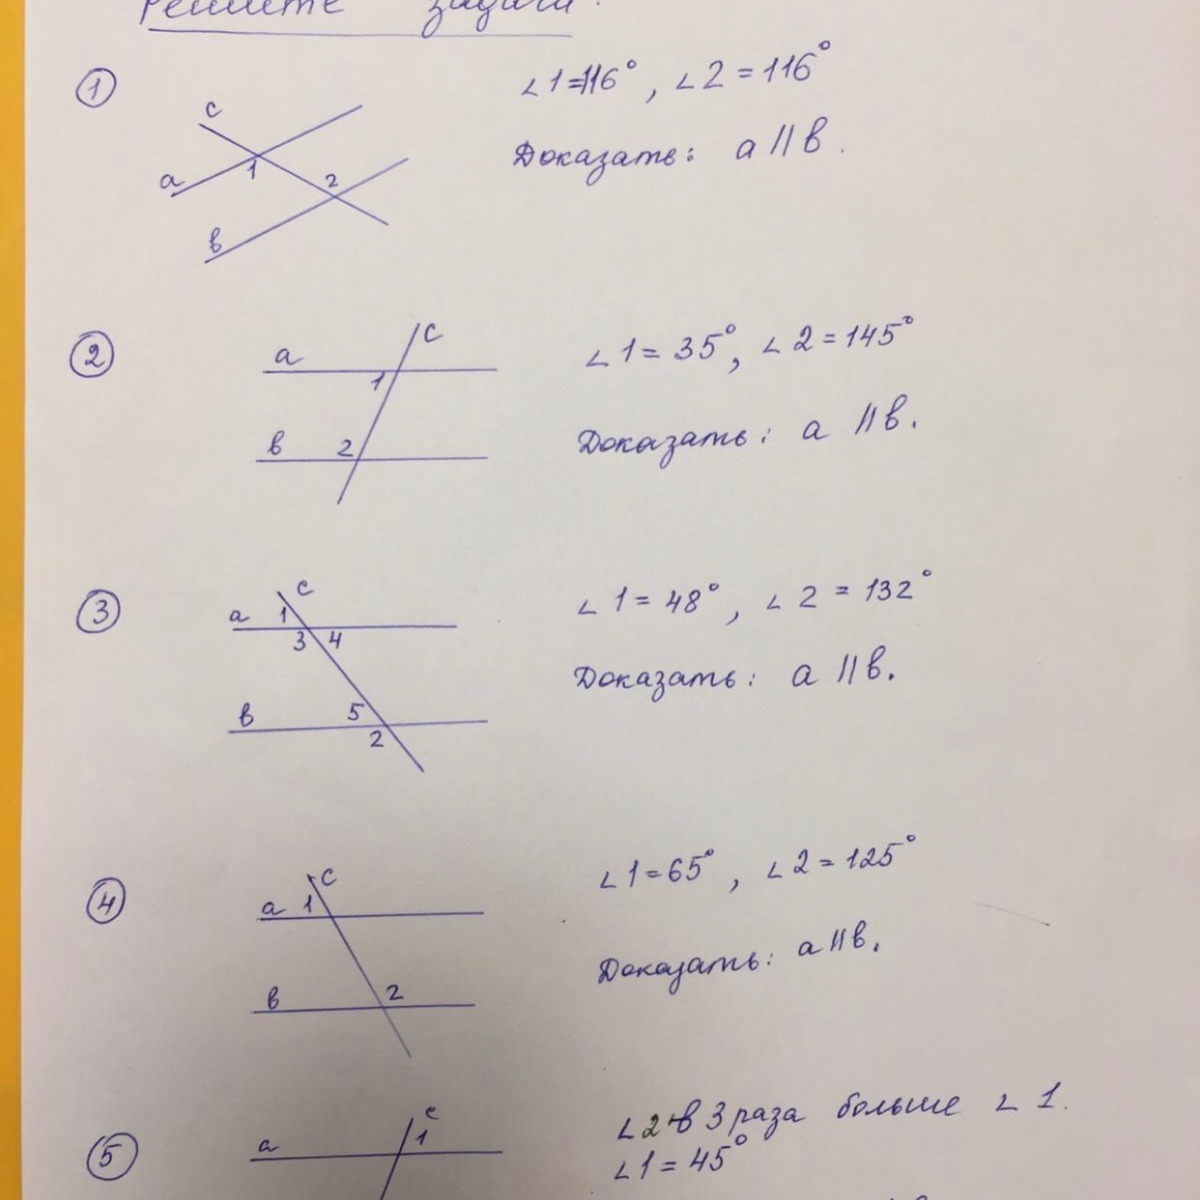 Решите задачи.
① ∠1=116°, ∠2=116°
Доказать: a || в.
c
a 1 2
в
② ∠1=35°, ∠2=145°
Доказать: a || в.
c
a
1
в 2
③ ∠1=48°, ∠2=132°
Доказать: a || в.
c
a 1
3 4
в 5
2
④ ∠1=65°, ∠2=125°
Доказать: a || в.
c
a 1
в 2
⑤ ∠2 в 3 раза больше ∠1.
∠1=45°
c
a 1